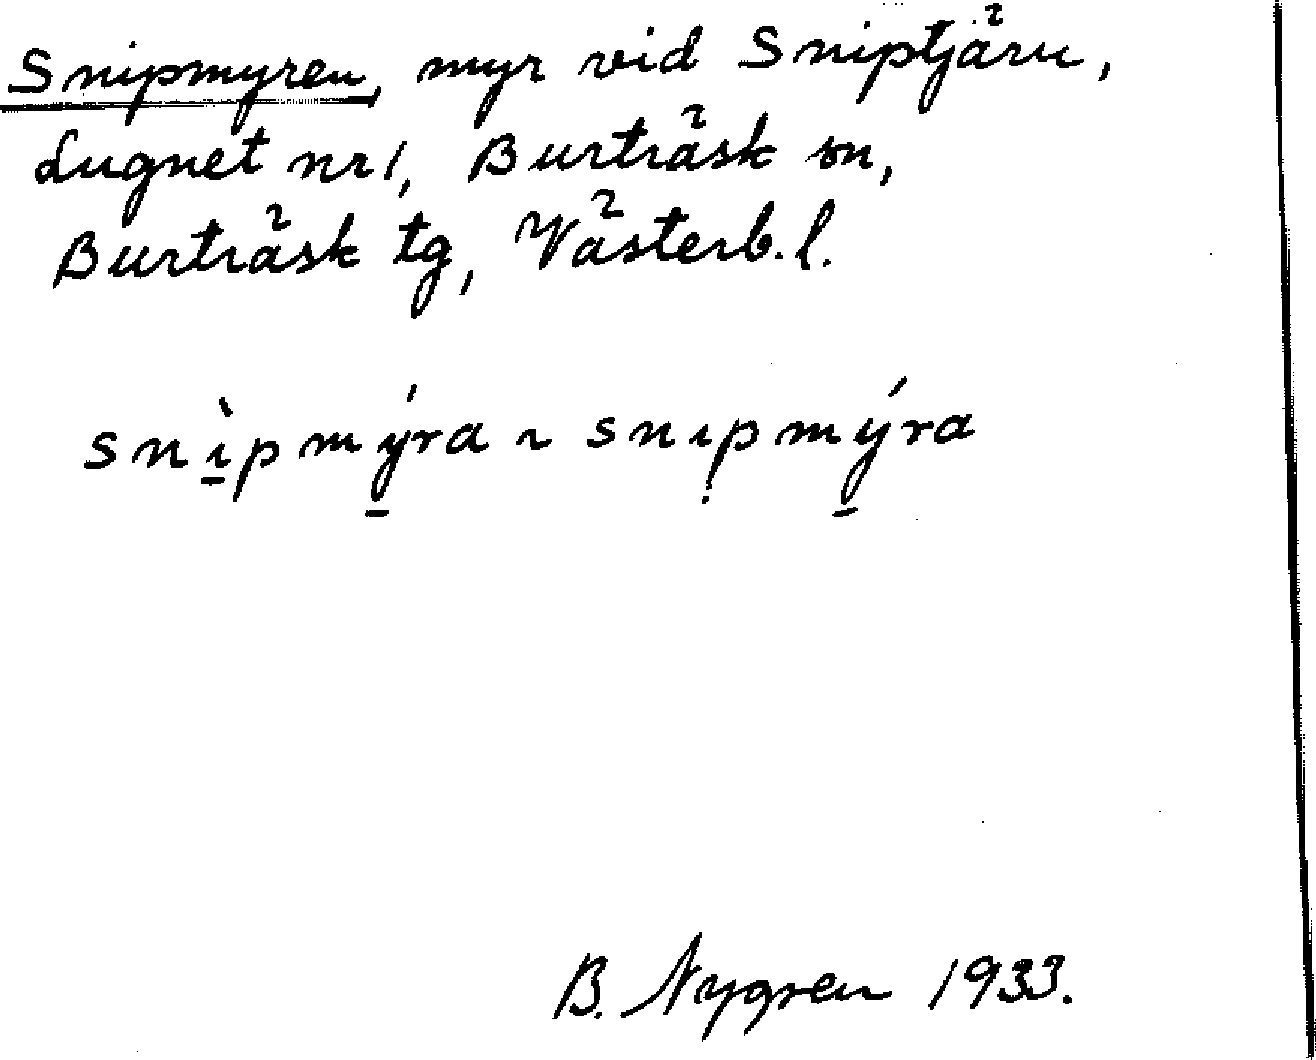 Snipmyren, myr vid Sniptjärn,
Lugnet nr 1, Burträsk sn,
Burträsk tg, Västerb. l.
snì̱pmý̱ra ~ snıp̣mý̱ra
B. Nygren 1933.